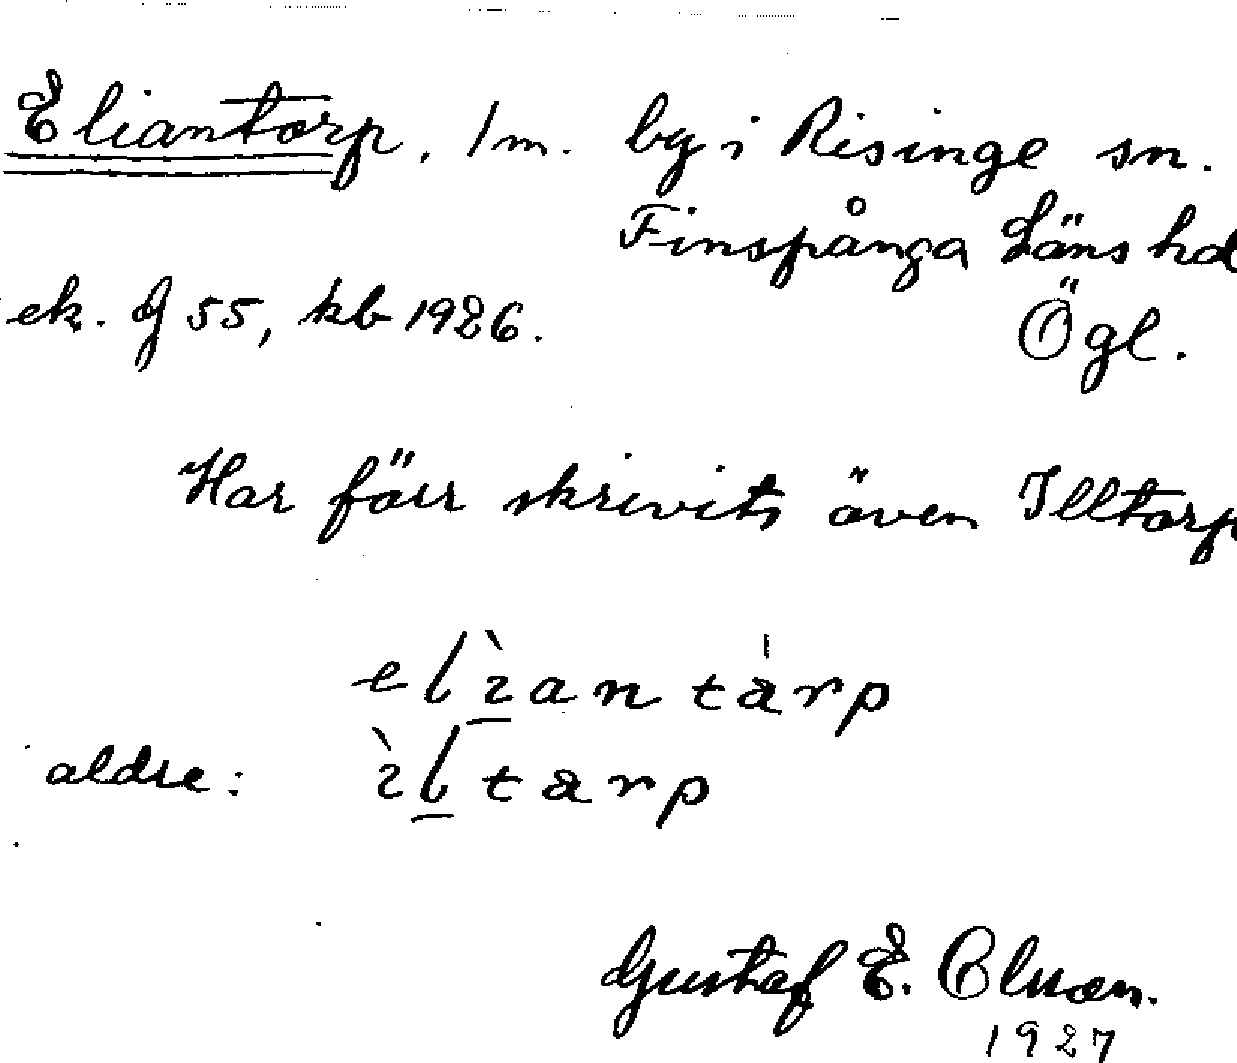 Eliantorp, 1 m. by i Risinge sn.
Finspånga Läns hd
ek. J 55, kb 1926. Ögl.
Har förr skrivits även Illtorp
elìantårp
äldre: ìltarp
Gustaf E. Olsson.
1927